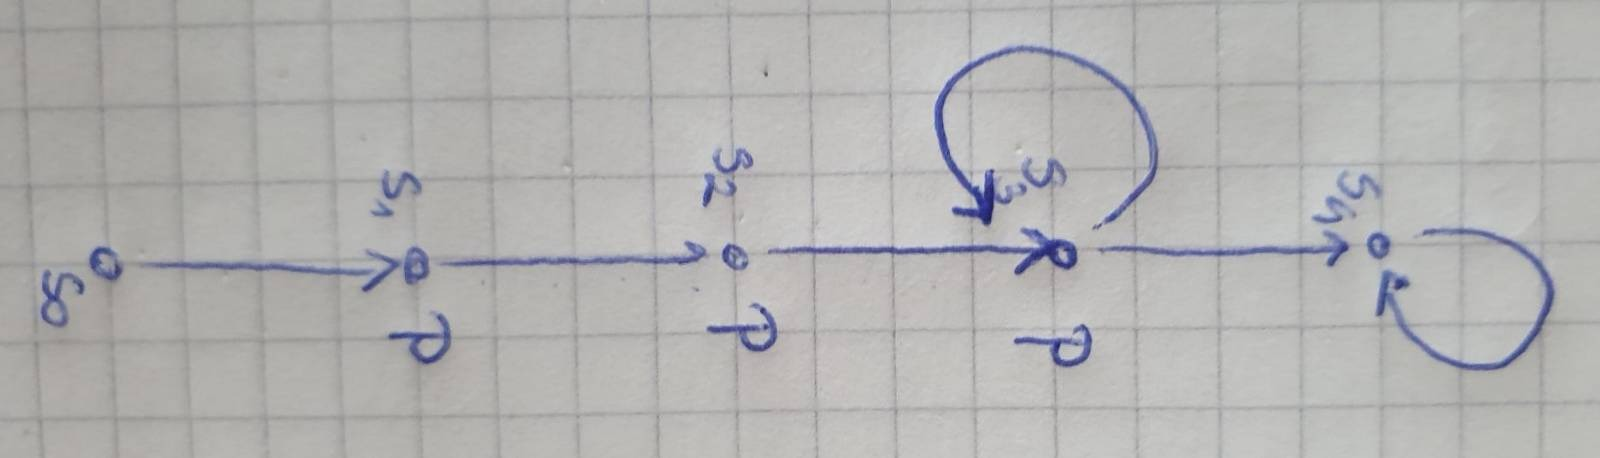 S0
S1
P
S2
P
S3
P
S4